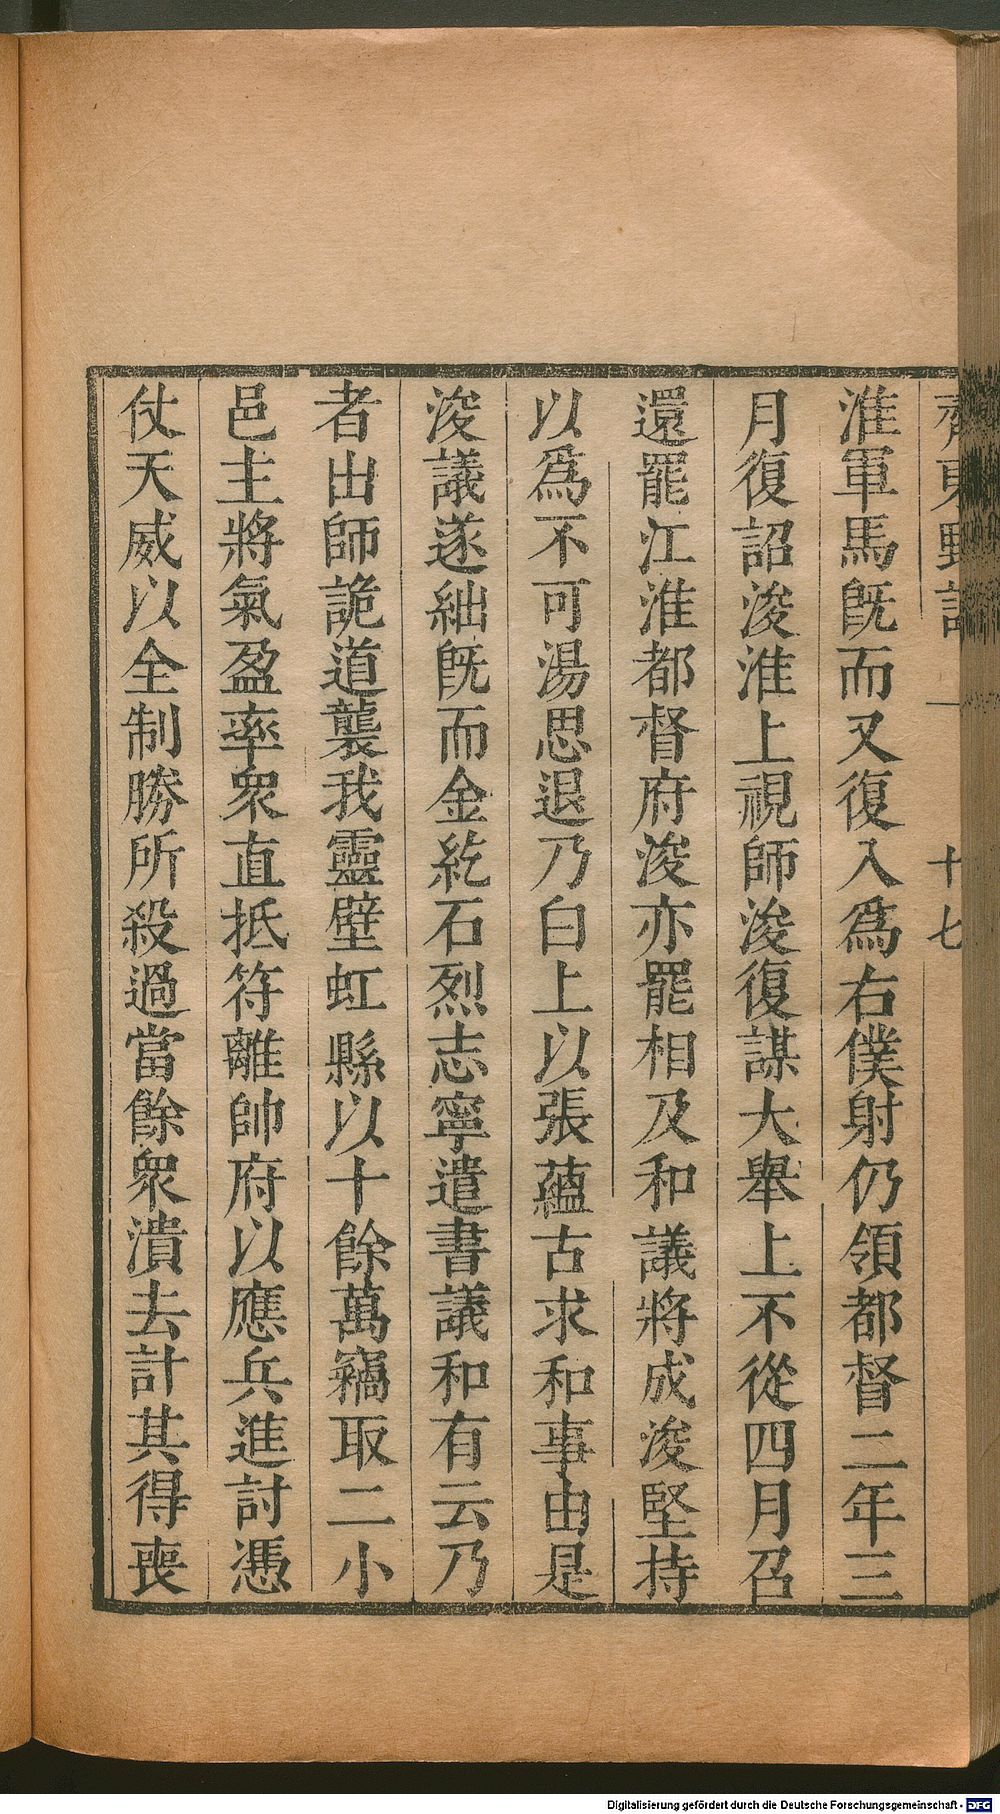 齊東野語 一 十七
淮軍馬旣而又復入爲右僕射仍領都督二年三
月復詔浚淮上視師浚復謀大舉上不從四月召
還罷江淮都督府浚亦罷相及和議將成浚堅持
以爲不可湯思退乃白上以張蘊古求和事由是
浚議遂絀旣而金紇石烈志寧遣書議和有云乃
者出師詭道襲我靈壁虹縣以十餘萬竊取二小
邑主將氣盈率衆直抵符離帥府以應兵進討憑
仗天威以全制勝所殺過當餘衆潰去計其得喪
Digitalisierung gefördert durch die Deutsche Forschungsgemeinschaft - DFG